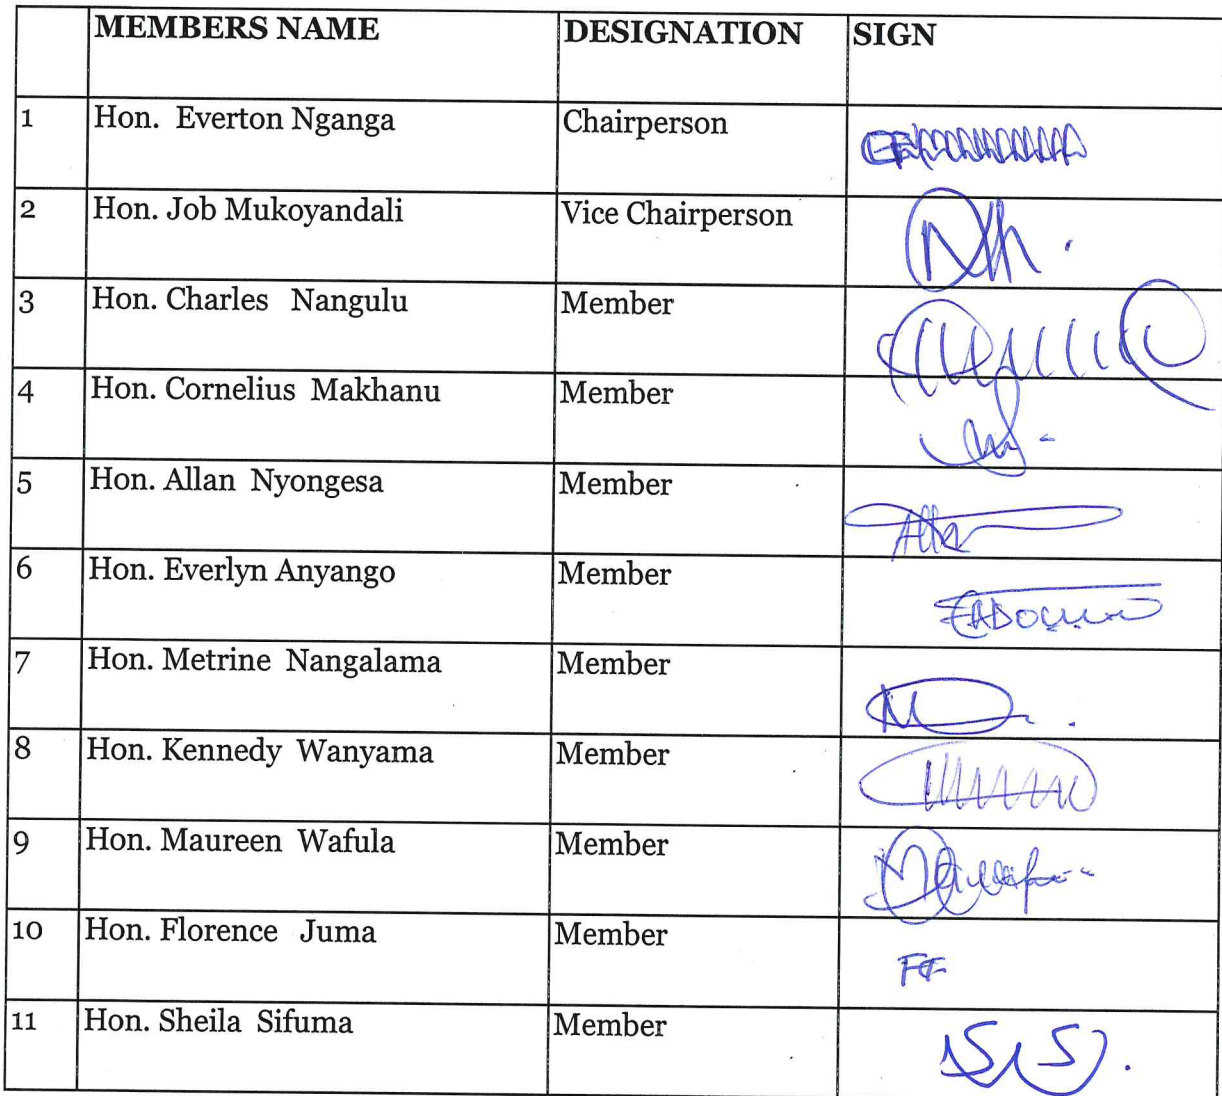 MEMBERS NAME DESIGNATION SIGN
1 Hon. Everton Nganga Chairperson
2 Hon. Job Mukoyandali Vice Chairperson
3 Hon. Charles Nangulu Member
4 Hon. Cornelius Makhanu Member
5 Hon. Allan Nyongesa Member
6 Hon. Everlyn Anyango Member
7 Hon. Metrine Nangalama Member
8 Hon. Kennedy Wanyama Member
9 Hon. Maureen Wafula Member
10 Hon. Florence Juma Member
11 Hon. Sheila Sifuma Member